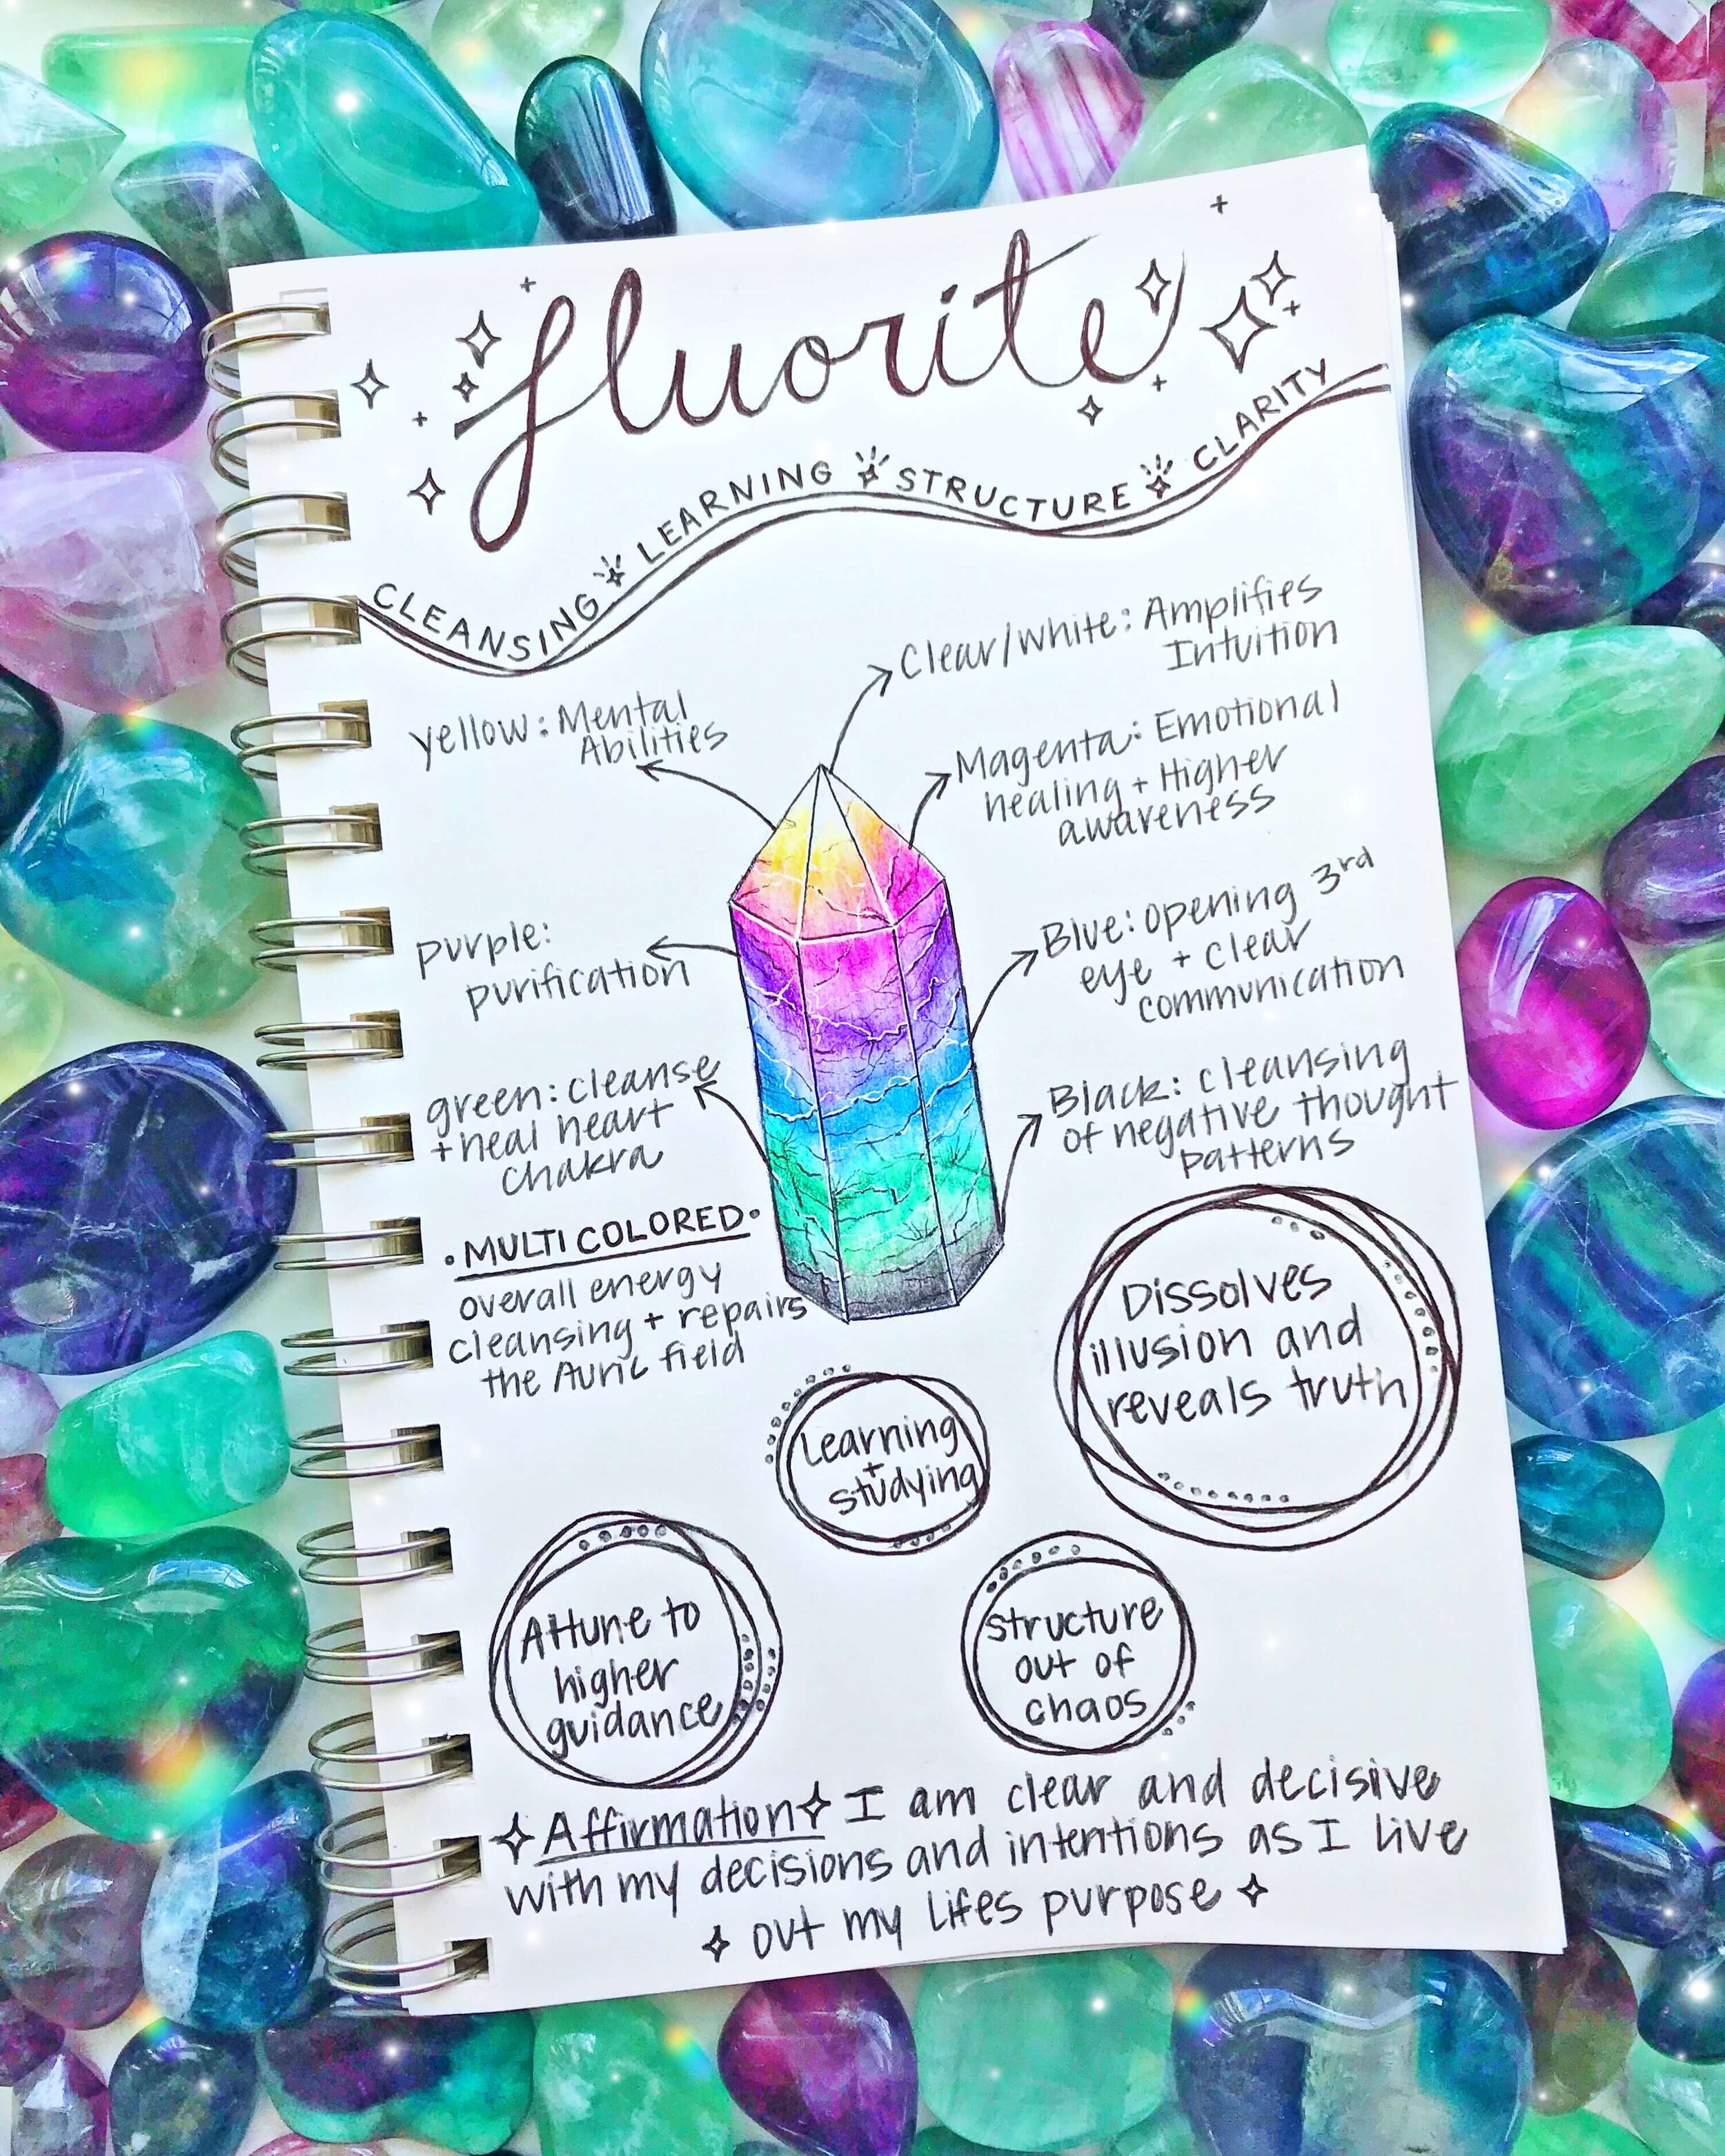 fluorite
CLEANSING LEARNING STRUCTURE CLARITY
Clear/White: Amplifies
Intuition
yellow: Mental
Abilities
Magenta: Emotional
healing + Higher
awareness
purple:
purification
Blue: opening 3rd
eye + clear
communication
green: cleanse
+ heal heart
chakra
Black: cleansing
of negative thought
patterns
• MULTICOLORED •
overall energy
cleansing + repairs
the Auric field
Dissolves
illusion and
reveals truth
Learning
+
studying
Attune to
higher
guidance
structure
out of
chaos
Affirmation I am clear and decisive
with my decisions and intentions as I live
out my lifes purpose